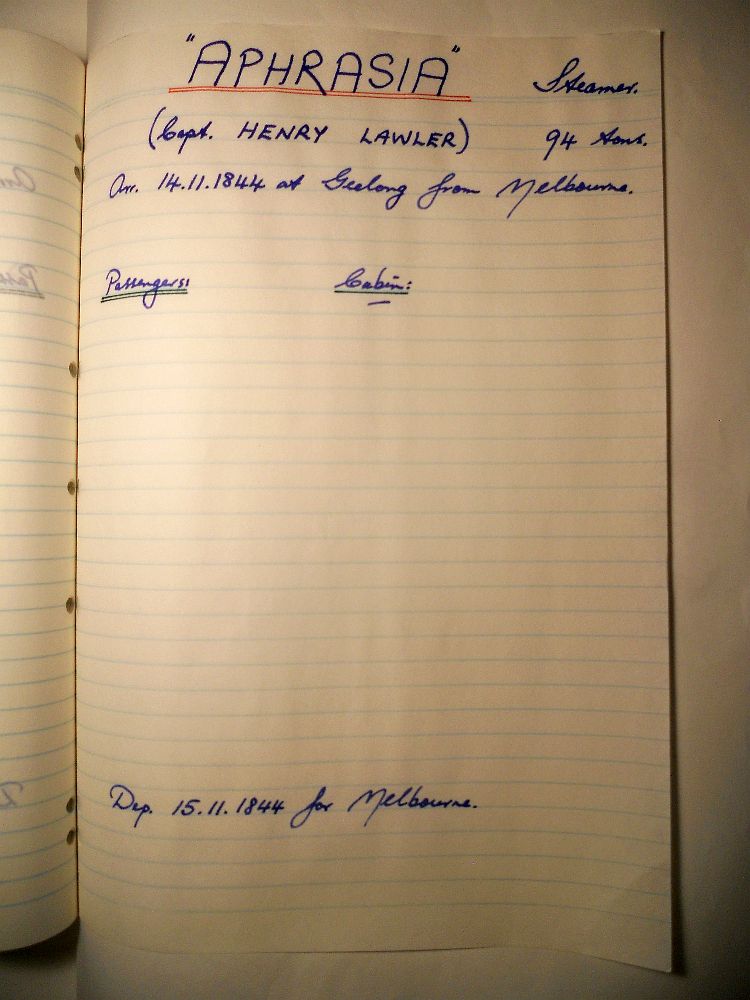 "APHRASIA" Steamer.
(Capt. HENRY LAWLER) 94 tons.
Arr. 14.11.1844 at Geelong from Melbourne.
Passengers: Cabin:
Dep. 15.11.1844 for Melbourne.